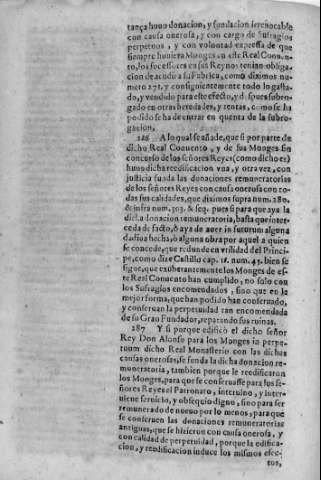 tança huuo donacion, y fundacion irreuocable
con causa onerosa, y con cargo de Sufragios
perpetuos, y con voluntad expressa de que
siempre huuiera Monges en este Real Conuen-
to, los successores en sus Reynos tenian obliga-
cion de acudir a su Fabrica, como diximos nu-
mero 271. y consiguientemente todo lo gasta-
do, y vendido para este efecto, y despues subro-
gado en otras heredades, y rentas, como se ha
podido se ha de entrar en quenta de la subro-
gacion.
A lo qual se añade, que si por parte de
dicho Real Conuento, y de sus Monges sin
concurso de los señores Reyes (como dicho es)
huuo dicha reedificacion vna, y otra vez, con
justicia funda las donaciones remuneratorias
de los señores Reyes con causa onerosa con to-
das sus calidades, que diximos supra num. 280.
& infra num. 303. & seq. pues si para que aya la
dicha donacion remuneratoria, basta que inter-
ceda de facto, ò aya de auer in futurum alguna
dadiua hecha, ò alguna obra por aquel a quien
se concede, que redunde en vtilidad del Princi-
pe, como dize Castillo cap. 18. num. 45. bien se
sigue, que exuberantemente los Monges de es-
te Real Conuento han cumplido, no solo con
los Sufragios encomendados, sino que en la
mejor forma, que han podido han conseruado,
y conseruan la perpetuidad tan encomendada
de su Gran Fundador, reparando sus ruinas.
287 Y si porque edificò el dicho señor
Rey Don Alonso para los Monges in perpe-
tuum dicho Real Monasterio con las dichas
causas onerosas, se funda la dicha donacion re-
muneratoria, tambien porque le reedificaron
los Monges, para que se conseruasse para los se-
ñores Reyes el Patronato, interuino, y inter-
uiene seruicio, y obsequio digno, sino para ser
remunerado de nueuo por lo menos, para que
se conseruen las donaciones remuneratorias
antiguas, que se hizieron con causa onerosa, y
con calidad de perpetuidad, porque la edifica-
cion, y reedificacion induce los mismos efec-
tos,